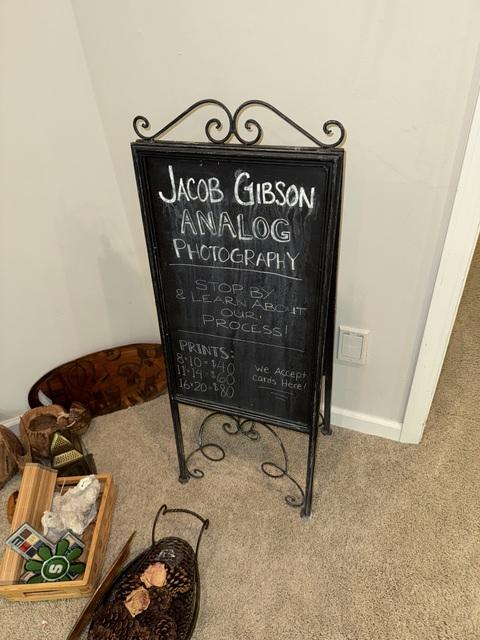 JACOB GIBSON
ANALOG
PHOTOGRAPHY
STOP BY
& LEARN ABOUT
OUR
PROCESS!
PRINTS:
8•10 = $40
11•14 = $60
16•20 = $80
We Accept
Cards Here!
S